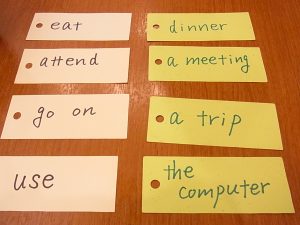 eat
dinner
attend
a meeting
go on
a trip
use
the
computer